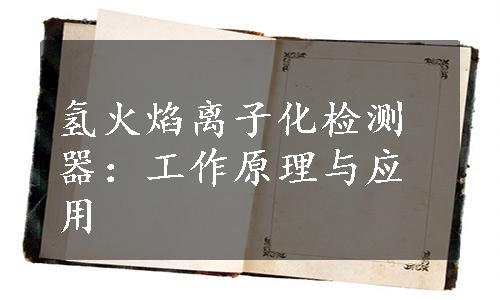 氢火焰离子化检测
器：工作原理与应
用